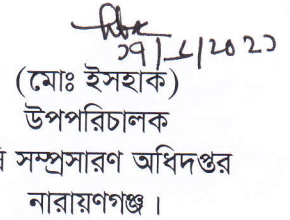 (মোঃ ইসহাক)
উপপরিচালক
সম্প্রসারণ অধিদপ্তর
নারায়ণগঞ্জ ।